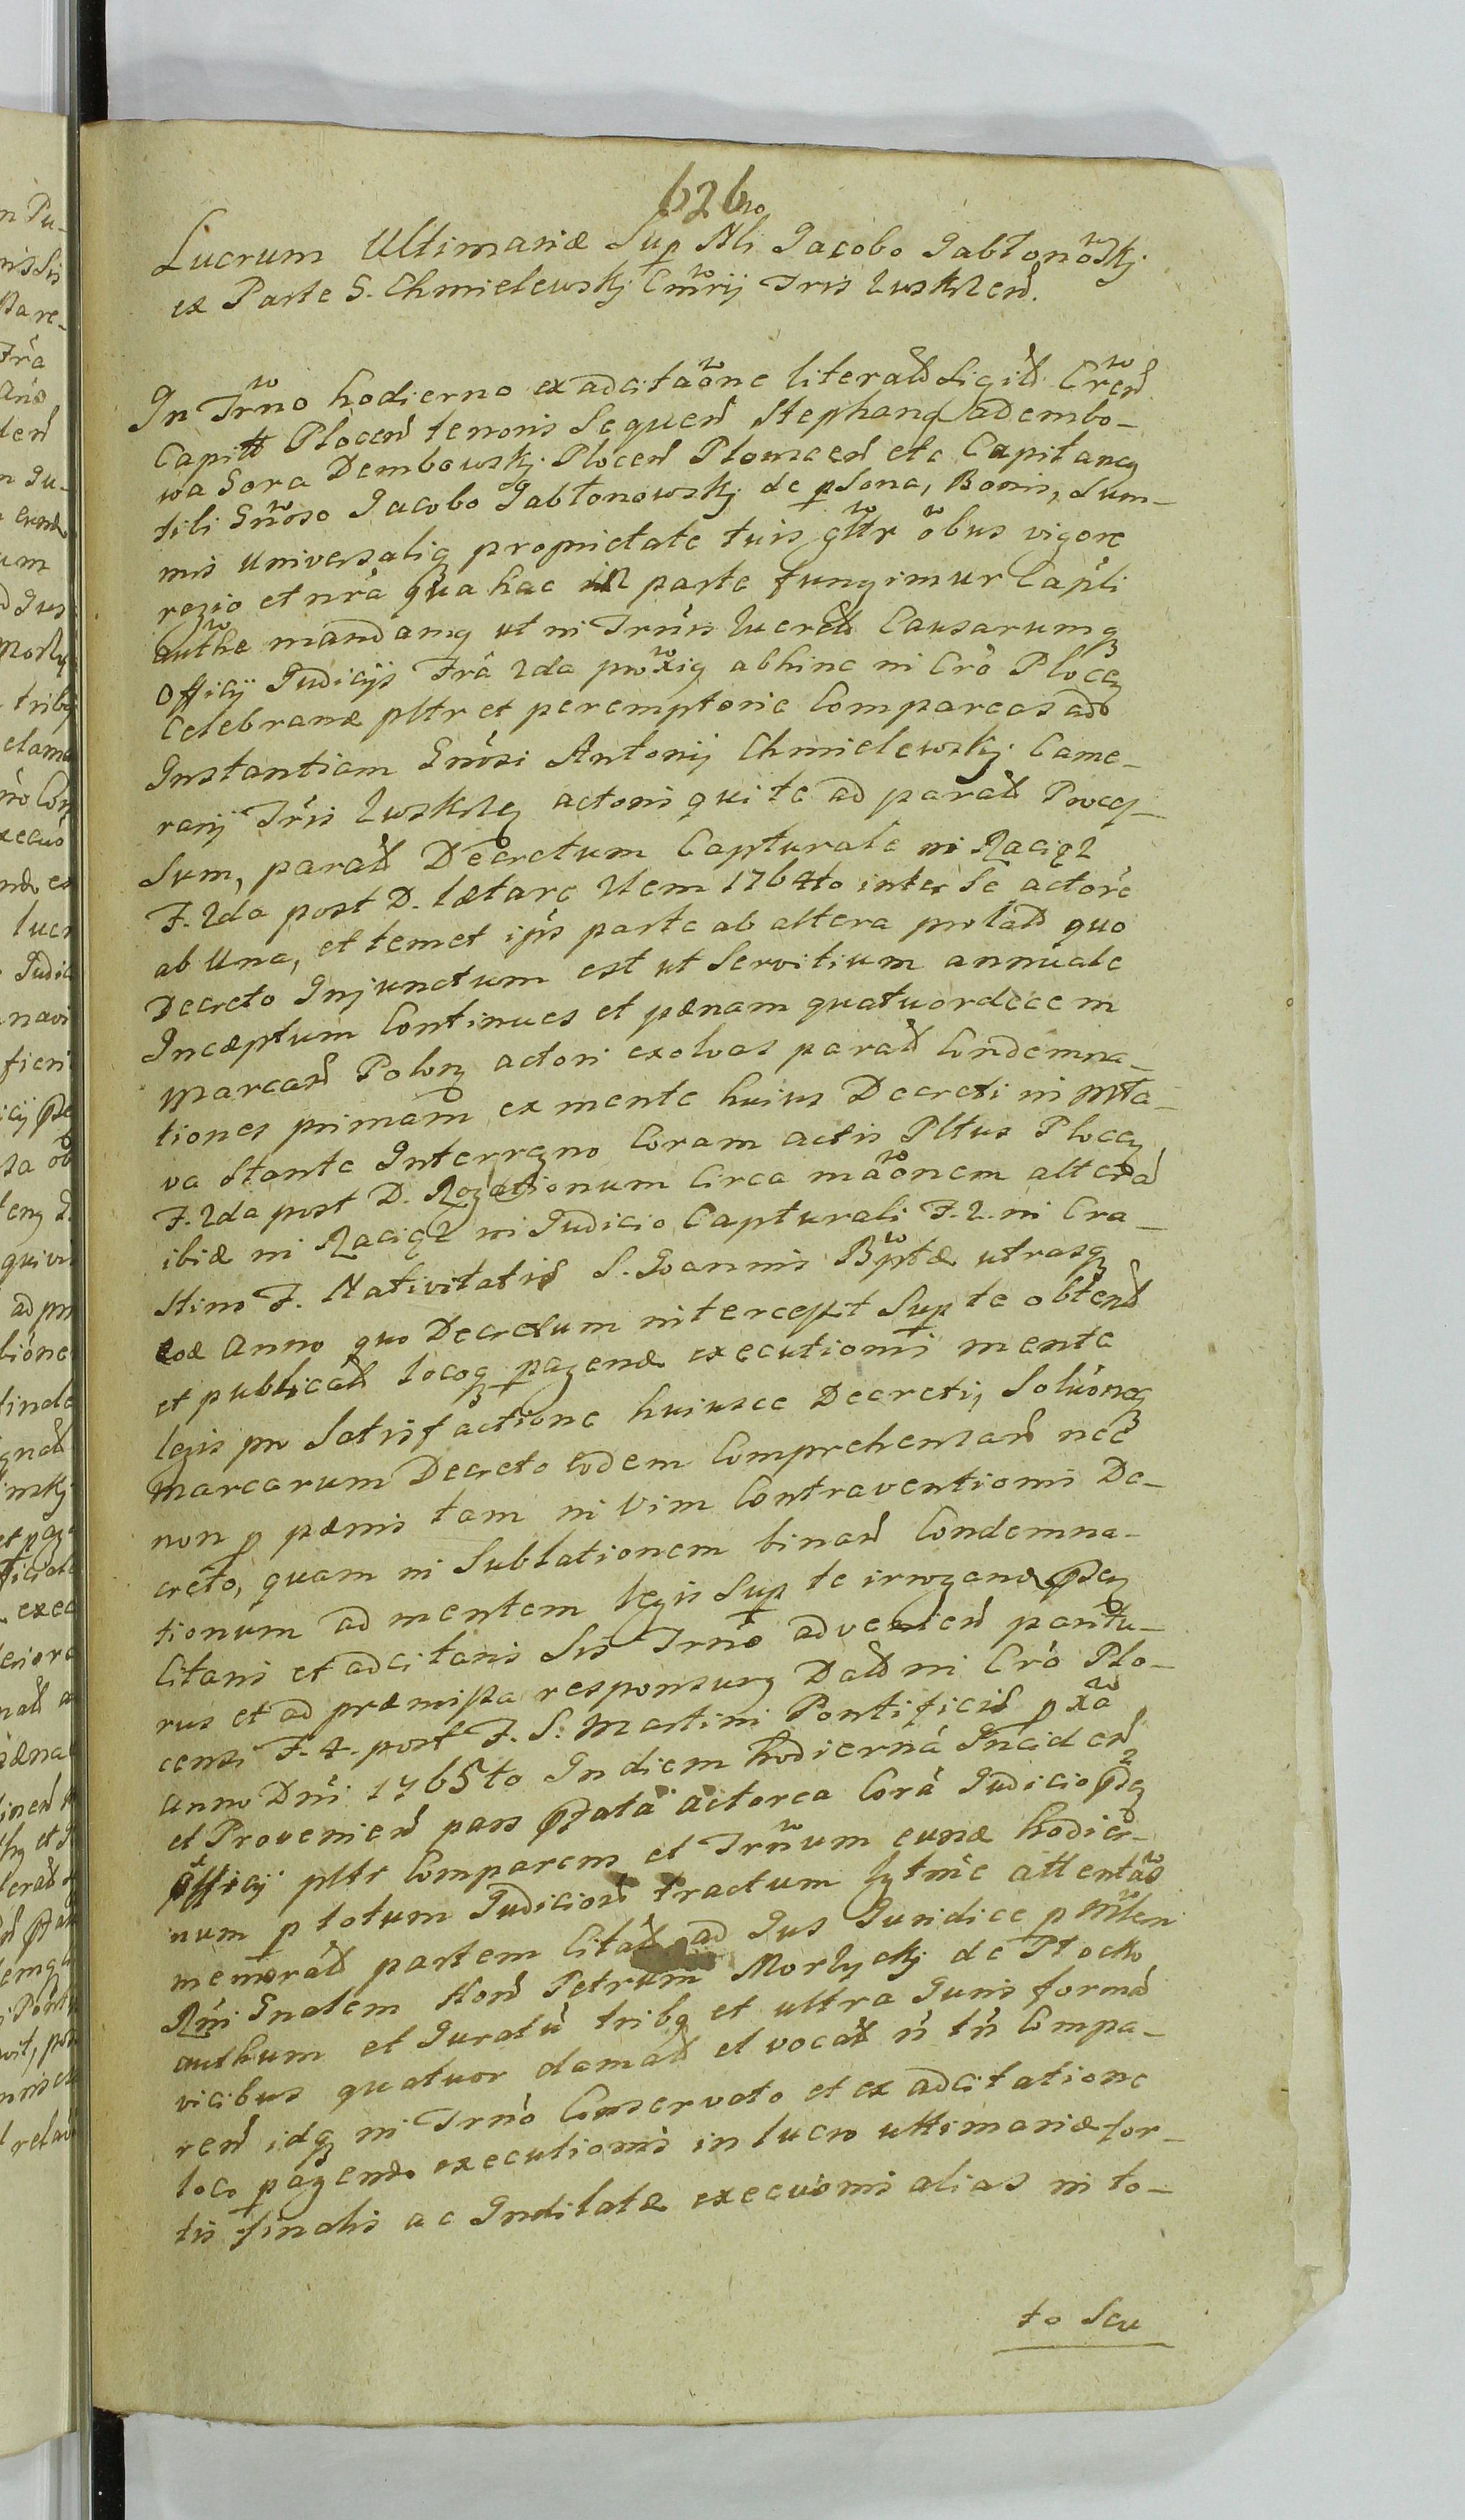 626
Lucrum Ultimariæ Sup Nli Jacobo Jabłonoskj
ex Parte G. Chmielewskj Cmrij Tris Zuskrzen.
In Trno hodierno ex adcitaone literad Sigild Cren
Capitt Plocen tenoris Sequen Stephang a Dembo-
wa Gora Dembowskj Plocen Plonscen etc Capitaneg
tibi Gnoso Jacobo Jabłonowskj de psona, Bonis, Sum-
mis universaliq proprietate tuis gltr obus vigore
regio et nra qua hac in parte fungimur Capli
authe mandamg ut in Trnis Zuerd Causarumq
Officij Judicijs Fra 2da proxig abhinc in Cro Ploceg
Celebrand pltr et peremptorie Compareas ad
Instantiam Gnosi Antonij Chmielewskj Came-
rarij Tris Zuskrzeg actoris qui te ad parad Proces-
sum, parad Decretum Capturale in Raciąż
F. 2da post D. lætare Item 1764to inter Se actore
ab Una, et temet ips parte ab altera prolad quo
Decreto Injunctum est ut Servitium annuale
Incæptum Continues et pænam quatuordecem
Marcard Polong actori exolvas parad Condemna-
tiones primam ex mente huius Decreti in Mła-
va Stante Interregno Coram actis Pltus Ploceg
F. 2da post D. Rogationum Circa maonem altera
ibid in Raciąż in Judicio Capturali F. 2. in Cra-
stino F. Nativitatis S. Joannis Bptæ utrasq
eod Anno quo Decretum intercept Sup te obtend
et publicad locoq pagend executioni mente
legis pro Satisfactione huiusce Decreti, Soluoneq
Marcarum Decreto eodem Comprehensard nec
non p pænis tam in Vim Contraventioni De-
creto, quam in Sublationem binard Condemna-
tionum ad mentem legis Sup te irrogand pseg
Citans et adcitans Sis Trno advenien paritu-
rus et ad præmissa responsurg Dad in Cro Plo-
censi F. 4. post F. S: Martini Pontificis pxa
Anno Dni 1765to In diem hodierna Inciden
et Provenien pars pfata actorea Cora Judicio pseg
Officij pltr Comparens et Trnum eund hodier-
num p totum Judiciord tractum lytme attentas
memorad partem Citad ad Jus Juridice p Mlem
Rni Gnalem Hond Petrum Morzyckj de Płocko
authum et Juratu tribg et ultra Juris forma
vicibus quatuor clamad et vocad n tn Compa-
ren idq in Trno Conservato et ex adcitatione
loco pagend executionis in lucro ultimariæ for-
tis finalis ac Inditatæ execuionis alias in to-
to Seu